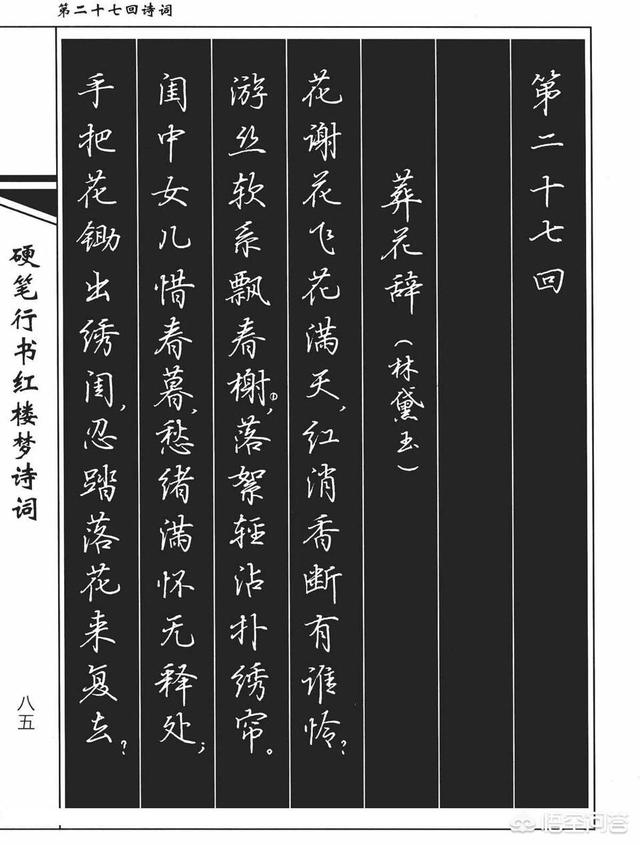 第二十七回诗词
第二十七回
葬花辞（林黛玉）
花谢花飞花满天，红消香断有谁怜？
游丝软系飘春榭，落絮轻沾扑绣帘。
闺中女儿惜春暮，愁绪满怀无释处；
手把花锄出绣闺，忍踏落花来复去？
硬笔行书红楼梦诗词
八五
悟空问答